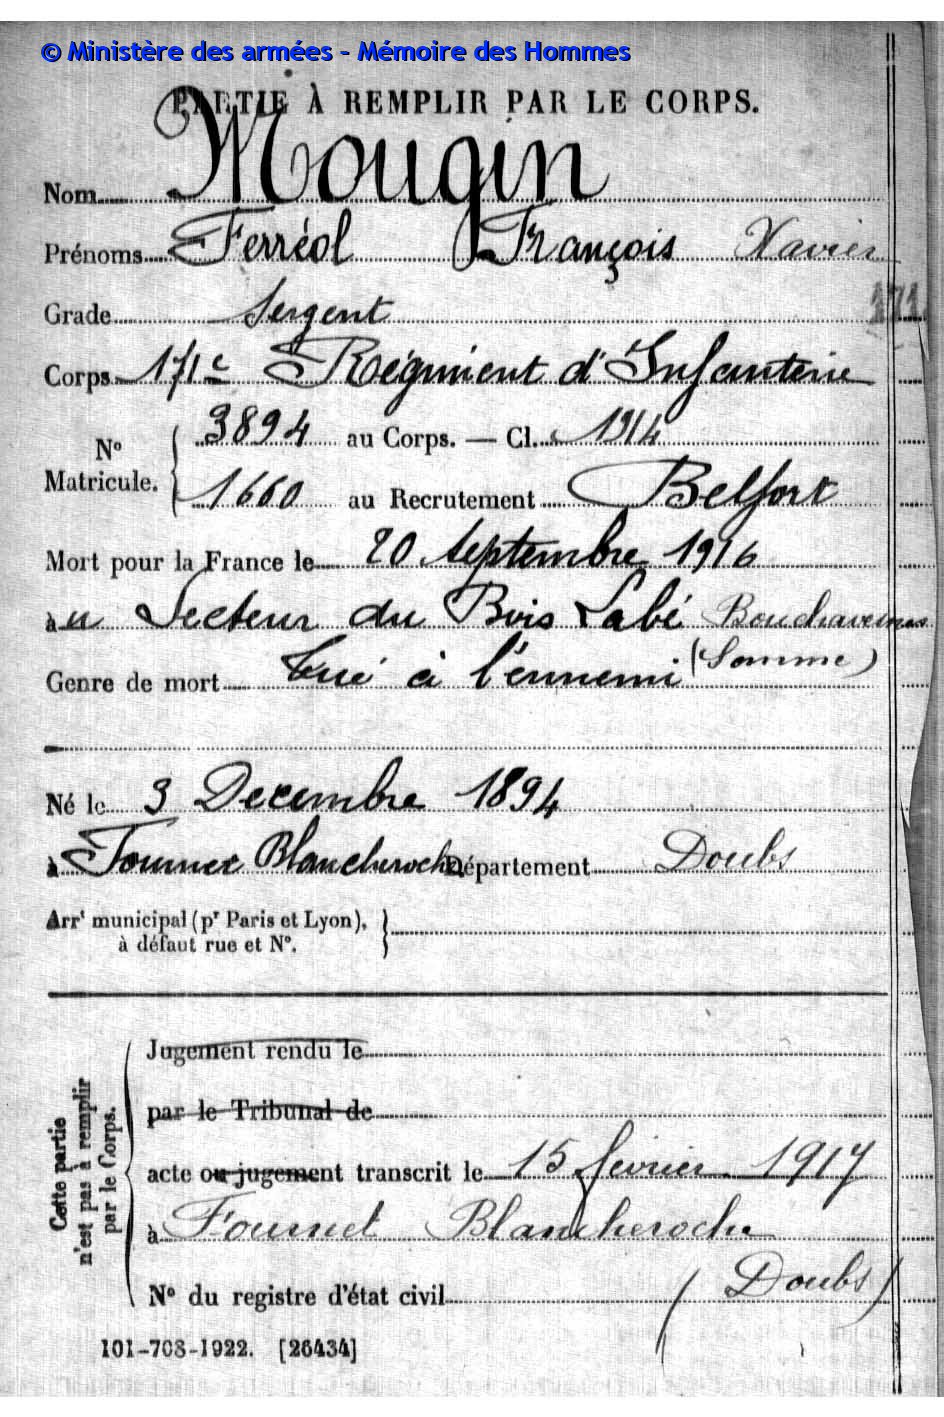 © Ministère des armées - Mémoire des Hommes
PARTIE À REMPLIR PAR LE CORPS.
Nom Mougin
Prénoms Ferréol François Xavier
Grade Sergent
171
Corps 171e Régiment d'Infanterie
N° Matricule. { 3894 au Corps. — Cl. 1914
1660 au Recrutement Belfort
Mort pour la France le 20 Septembre 1916
à u Secteur du Bois Labé Bouchavesnes
(Somme)
Genre de mort tué à l'ennemi
Né le 3 Decembre 1894
à Fournet Blancheroche Département Doubs
Arrt municipal (pr Paris et Lyon),
à défaut rue et N°.
Cette partie
n'est pas à remplir
par le Corps.
Jugement rendu le
par le Tribunal de
acte ou jugement transcrit le 15 février 1917
à Fournet Blancheroche
N° du registre d'état civil (Doubs)
101-708-1922. [26434]